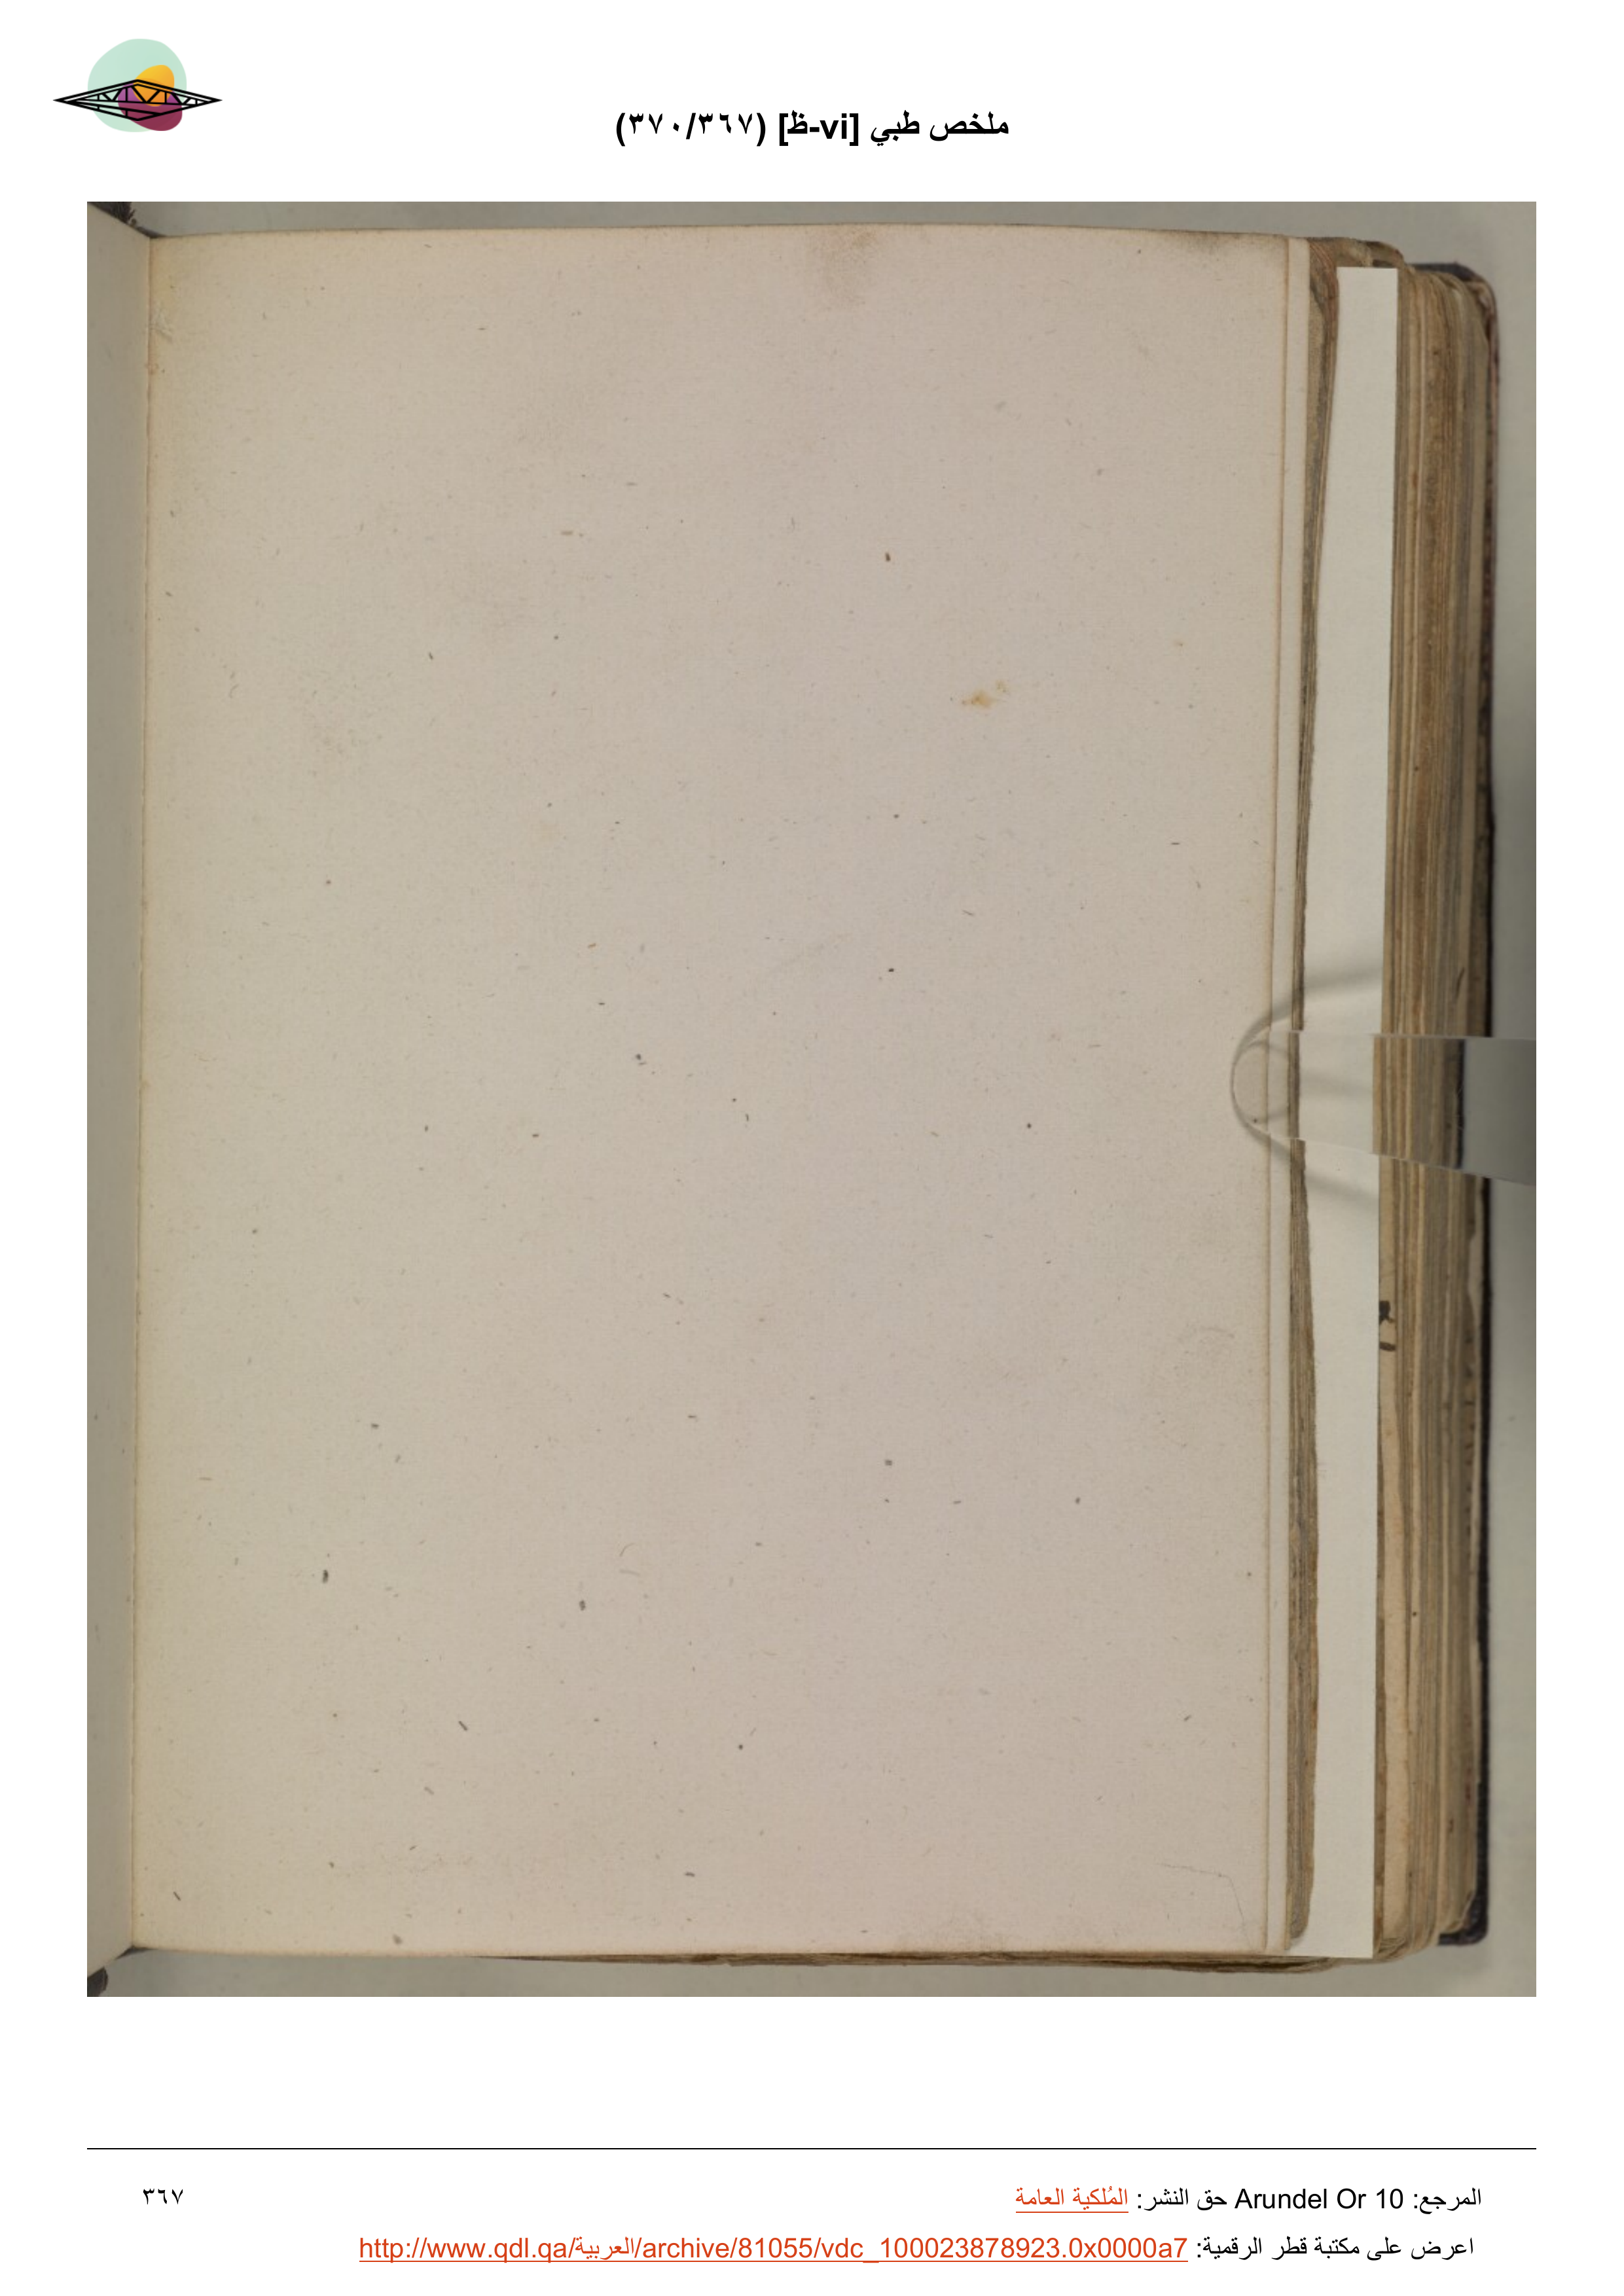 ملخص طبي [vi-ظ] (٣٦٧/٣٧٠)
المرجع: Arundel Or 10 حق النشر: المُلكية العامة
٣٦٧
اعرض على مكتبة قطر الرقمية: http://www.qdl.qa/العربية/archive/81055/vdc_100023878923.0x0000a7